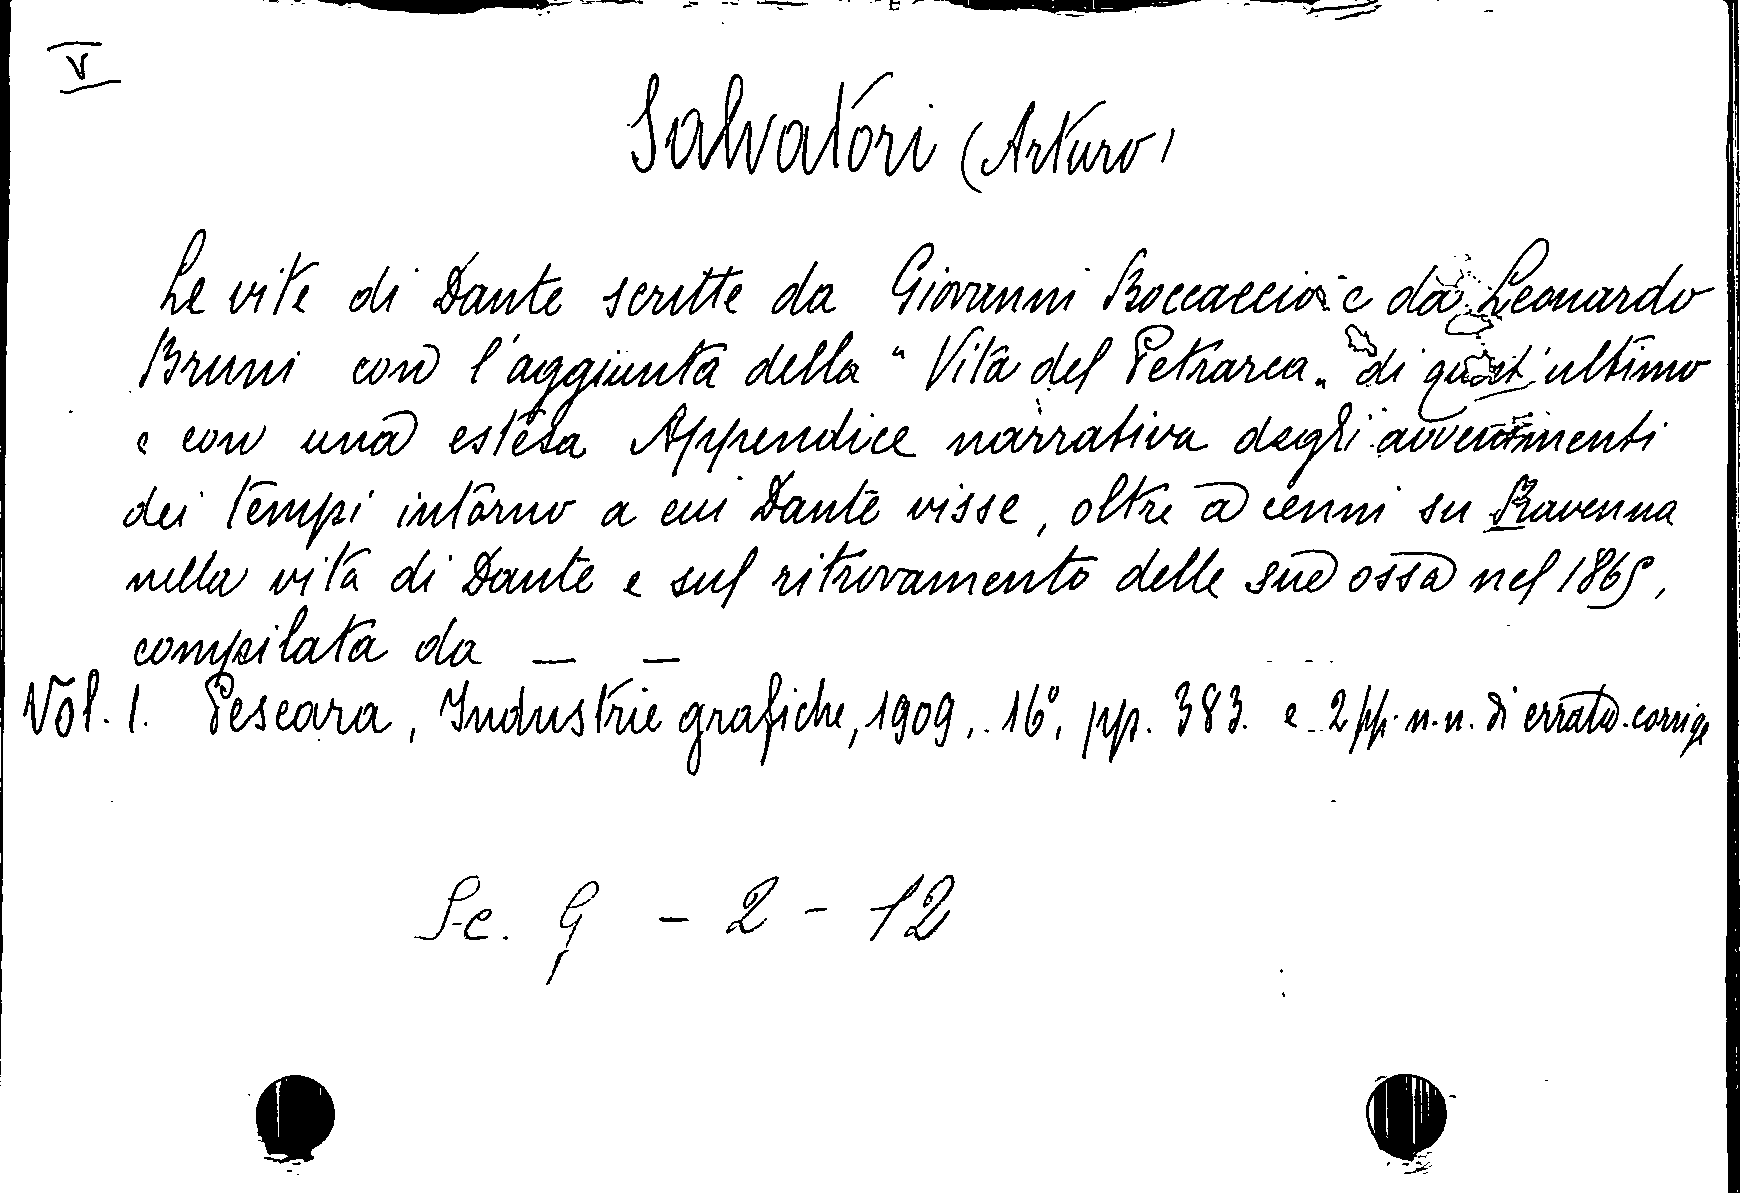 V
Salvatori (Arturo)
Le vite di Dante scritte da Giovanni Boccaccio e da Leonardo
Bruni con l'aggiunta della "Vita del Petrarca" di quest'ultimo
e con una estesa Appendice narrativa degli avvenimenti
dei tempi intorno a cui Dante visse, oltre a cenni su Ravenna
nella vita di Dante e sul ritrovamento delle sue ossa nel 1865,
compilata da — —
Vol. 1. Pescara, Industrie grafiche, 1909, 16°, pp. 383. e 2 pp. n. n. di errata-corrige
Sc. G - 2 - 12